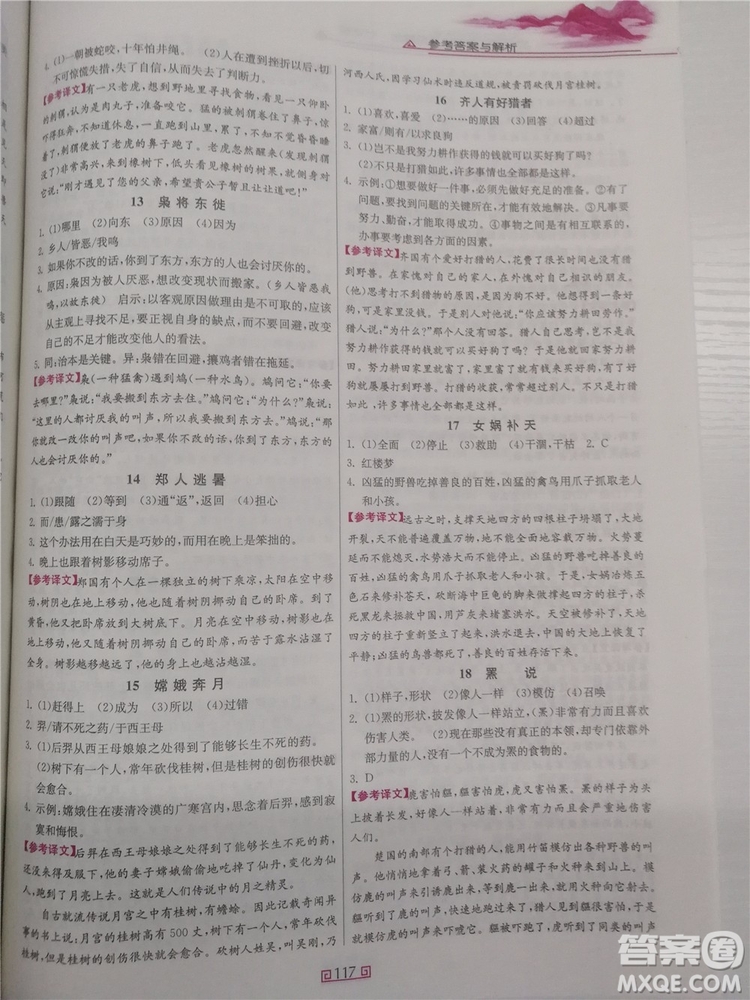 参考答案与解析
4. (1)一朝被蛇咬，十年怕井绳。 (2)人在遭到挫折以后，切
不可惊慌失措，失去了判断力。
【参考译文】有一只老虎，想到野地里寻找食物，看见一只仰卧
的刺猬，认为是肉丸子，准备吃它。猛的被刺猬卷着鼻子，
吓得狂奔，不知道休息，一直跑到山里，又困又乏，不知不觉昏昏睡
去，刺猬就放开了老虎的鼻子走了。老虎忽然醒了
非常高兴，
说：“刚才遇见了您的父亲，希望贵公子暂且让让路吧！”
13 枭将东徙
1. (1)哪里 (2)向东 (3)原因 (4)因为
2. 乡人/皆恶/我鸣
3. 如果你不改的话，你到了东方，东方的人也会讨厌你的。
4. 原因：枭因为被人厌恶，想改变环境而搬家。（乡人皆恶
我鸣，以故东徙） 启示：以客观原因做理由是不可取的，应该
从主观上寻找原因，要正视自身的缺点，而不要回避。只有改变自
己的不足才能改变他人的看法。
5. 同：治本是关键。异：枭错在回避，攘鸡者错在拖延。
【参考译文】枭（一种猛禽）遇到鸠（一种水鸟）。鸠问它：“你要
到哪里去？”枭说：“我要搬到东方去。”鸠问它：“为什么？”枭说：
“这里的人都讨厌我的叫声，所以我要搬到东方去住。”鸠说：
“你改变你的叫声吧！你不改变叫声，那么搬到了东方，东方
的人也会讨厌你的叫声。”
14 郑人逃暑
1. (1)跟随 (2)等到 (3)通“返”，返回 (4)担心
2. 而/患/露之濡于身
3. 这个办法用在白天是巧妙的，而用在晚上是笨拙的。
4. 晚上也跟着树影移动席子。
【参考译文】郑国有个人在一棵独立的树下乘凉，太阳在空中移
动，树影也在地上移动，他也跟着树阴挪动自己的卧席。到了
黄昏，他又把卧席放到大树底下。月亮在空中移动，树影也在
地上移动，他又跟着树阴挪动自己的卧席，而苦于露水沾湿了
全身。树影越移越远了，他的身上也越沾越湿了。
15 嫦娥奔月
1. (1)赶得上 (2)成为 (3)所以 (4)过错
2. 羿/请不死之药/于西王母
3. (1)后羿从西王母娘娘之处得到了能够长生不死的药。
(2)树下有一个人，常年砍伐桂树，桂树的创伤很快就会愈
合。
4. 示例：嫦娥住在凄清冷漠的广寒宫内，思念亲人，感到寂
寞和悔恨。
【参考译文】后羿在西王母娘娘之处得到了能够长生不死的药，
还未来得及服下，他的妻子嫦娥偷偷地吃了仙丹，得以成仙，
跑到了月亮上去。她就是人们传说中的月之精灵。
自古就流传月宫之中有桂树，有蟾蜍。因此记载奇闻异
事的书上说：月宫的桂树高500丈，树下有一个人，常年砍伐
它，但是桂树的创伤很快就会愈合。砍树人姓吴，叫吴刚，乃
河西人氏，因学习仙术时违反道规，被责罚砍伐月宫桂树。
16 齐人有好猎者
1. (1)喜欢，喜爱 (2)……的原因 (3)回答 (4)超过
2. 家富/则有/以求良狗
3. (1)您的意思是说我努力耕作获得的钱就可以买好狗了吗？
(2)不只是打猎如此，许多事情也全部都是这样。
4. 示例：①想要做好一件事，必须做好充足的准备。②有了
问题，要找到问题的关键所在才能解决问题。③凡事要
努力、勤奋，才能取得成功。④事物之间是有相互联系的，
办事要考虑到各方面的因素。
【参考译文】齐国有个爱好打猎的人，花费了很长时间也没有猎
到野兽。在家愧对自己的家人，在外愧对自己相识的朋友。
(他)思考打不到猎物的原因，是因为狗不好。他想得到一条好
狗，可是家里穷，没有钱买。有人对他说：“你应该努力耕田劳作。”
猎人说：“为什么？”那个人没有回答。猎人自己想：“意思是我努
力耕作获得的钱就可以买好狗了吗？”于是就回家努力耕田
劳作。努力耕田劳作家里就富了，家里富了就有钱买好狗，有了好
狗就屡屡打到野兽，打猎的收获，常常超过别人。不只是打猎如
此，许多事情也全部都是这样。
17 女娲补天
1. (1)全面 (2)停止 (3)救助 (4)干涸，干枯 2. C
3. 红楼梦
4. 凶猛的野兽吃掉善良的百姓，凶猛的禽鸟用爪子抓取老人
和小孩。
【参考译文】远古之时，支撑天地四方的四根柱子坍塌了，大地
开裂，天不能普遍覆盖万物，地不能全面地容载万物。火势蔓
延而不能熄灭，水势浩大而不能停止。凶猛的野兽吃掉善良
的百姓，凶猛的禽鸟用爪子抓取老人和小孩。于是，女娲冶炼五
色石来修补苍天，砍断海中巨龟的脚来做撑起四方的柱子，杀
死黑龙来拯救中原，用芦灰来堵塞洪水。天空被修补了，天地
四方的柱子重新竖立了起来，洪水退去，中原大地上恢复了
平静，凶猛的鸟兽都死了，善良的百姓存活下来。
18 罴说
1. (1)样子，形状 (2)像人一样 (3)模仿 (4)召唤
2. (1)罴的形状，披发像人一样站立，(罴)非常有力而且喜欢
伤害人类。 (2)现在那些没有真正的本领，却专门依靠外
部力量的人，没有不成为罴的食物的。
3. D
【参考译文】鹿害怕貙，貙害怕虎，虎又害怕罴。罴的样子头上
披长发，像人一样站着，非常有力气而且能够伤害
人们。
楚国的南部有个打猎的人，能用竹笛模仿出各种野兽的
叫声。他悄悄地拿着弓、箭、装火药的罐子和火种来到山上，模
仿鹿的叫声来引诱鹿出来，等到鹿一出来，就用火种向它射去。
貙听到了鹿的叫声，快速地跑过来了，猎人见到貙很害怕，于是就
模仿虎的叫声来吓唬它。貙被吓跑了，虎听到了同类的叫声
117
答案圈
MXQE.COM